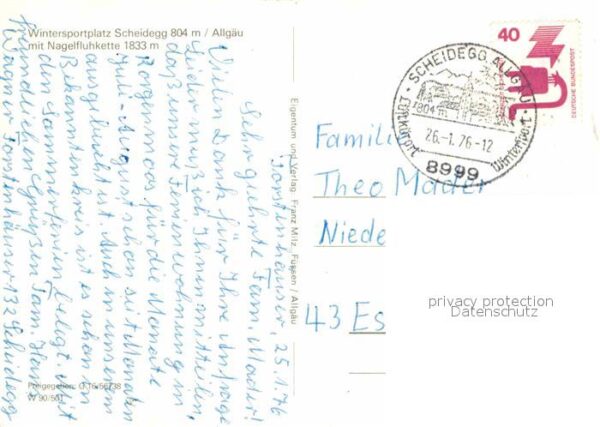 Wintersportplatz Scheidegg 804 m / Allgäu
mit Nagelfluhkette 1833 m
Forstenhäuser, 25.1.76
Sehr geehrte Fam. Mader!
Vielen Dank für Ihre Anfrage
Leider muß ich Ihnen mitteilen,
daß unsere Ferienwohnung in
für die Monate
Juli-August schon seit Monaten
ausgebucht ist. Auch in unserem
Bekanntenkreis ist es schon in
den Sommerferien belegt. Mit
freundlichen Grüßen Fam. Hans
Wagner Forstenhäuser 132 Scheidegg
Preisgegeben: G 16/56738
W 90/501
Eigentum und Verlag: Franz Milz, Füssen / Allgäu
40
DEUTSCHE BUNDESPOST
SCHEIDEGG, ALLGÄU
804 m
26.-1.76-12
Luftkurort
Wintersport
8999
Familie
Theo Mader
Niede
43 Es
privacy protection
Datenschutz